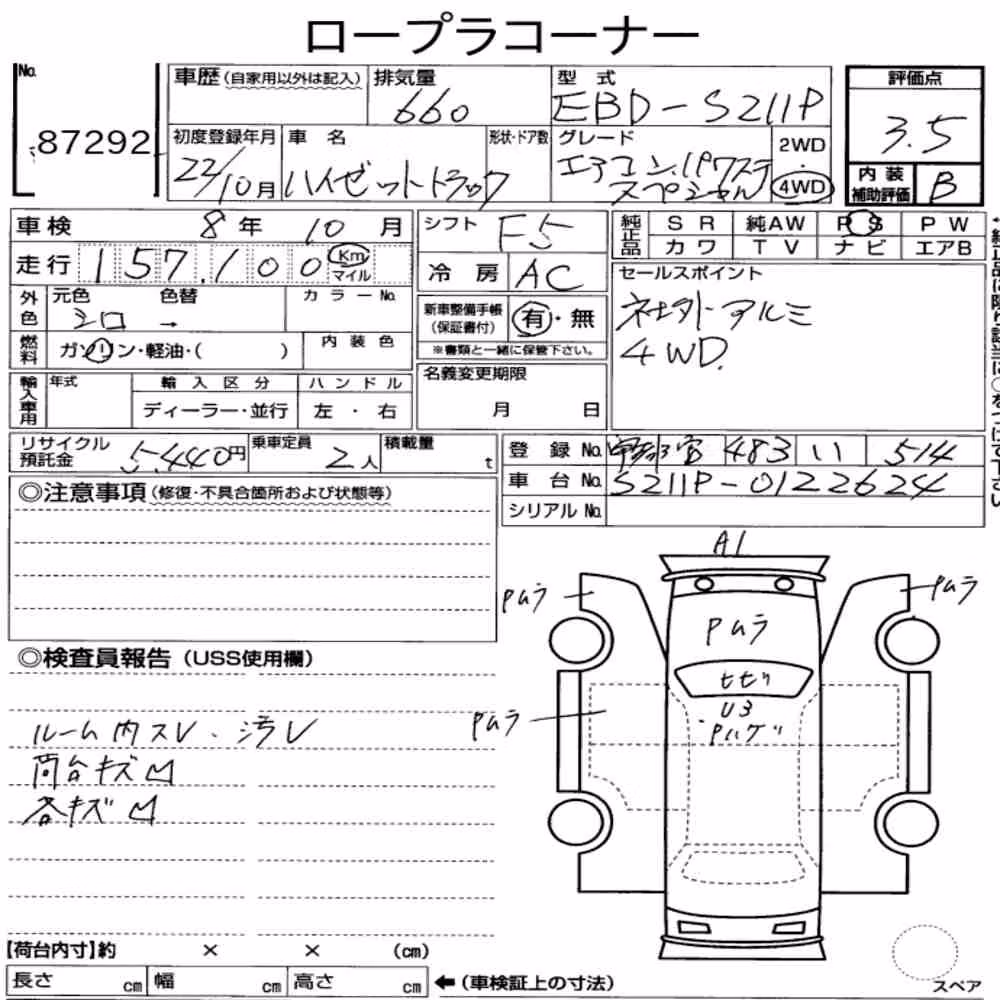 ロープラコーナー
No. 87292
車歴 (自家用以外は記入)
排気量 660
型式 EBD-S211P
評価点 3.5
内装補助評価 B
初度登録年月 22/10月
車名 ハイゼットトラック
形状・ドア数
グレード エアコン.パワステ
スペシャル
2WD・4WD
車検 8年 10月
シフト F5
純正品 SR 純AW PS PW
カワ TV ナビ エアB
走行 157,100 Km マイル
冷房 AC
セールスポイント
社外アルミ
4WD.
外色 元色 シロ → 色替
カラーNo.
新車整備手帳 (保証書付) 有・無
※書類と一緒に保管下さい。
燃料 ガソリン・軽油・( )
内装色
名義変更期限
月 日
輸入車用 年式
輸入区分 ハンドル
ディーラー・並行 左・右
リサイクル預託金 5,440円
乗車定員 2人
積載量 t
登録No. 483 い 514
車台No. S211P-0122624
シリアルNo.
◎注意事項 (修復・不具合箇所および状態等)
A1
Pムラ
Pムラ
Pムラ
◎検査員報告 (USS使用欄)
トビ
U3
Pハゲ
Pムラ
ルーム内スレ・汚レ
荷台キズ凹
各キズ凹
【荷台内寸】約 × × (cm)
長さ cm 幅 cm 高さ cm ←(車検証上の寸法)
スペア